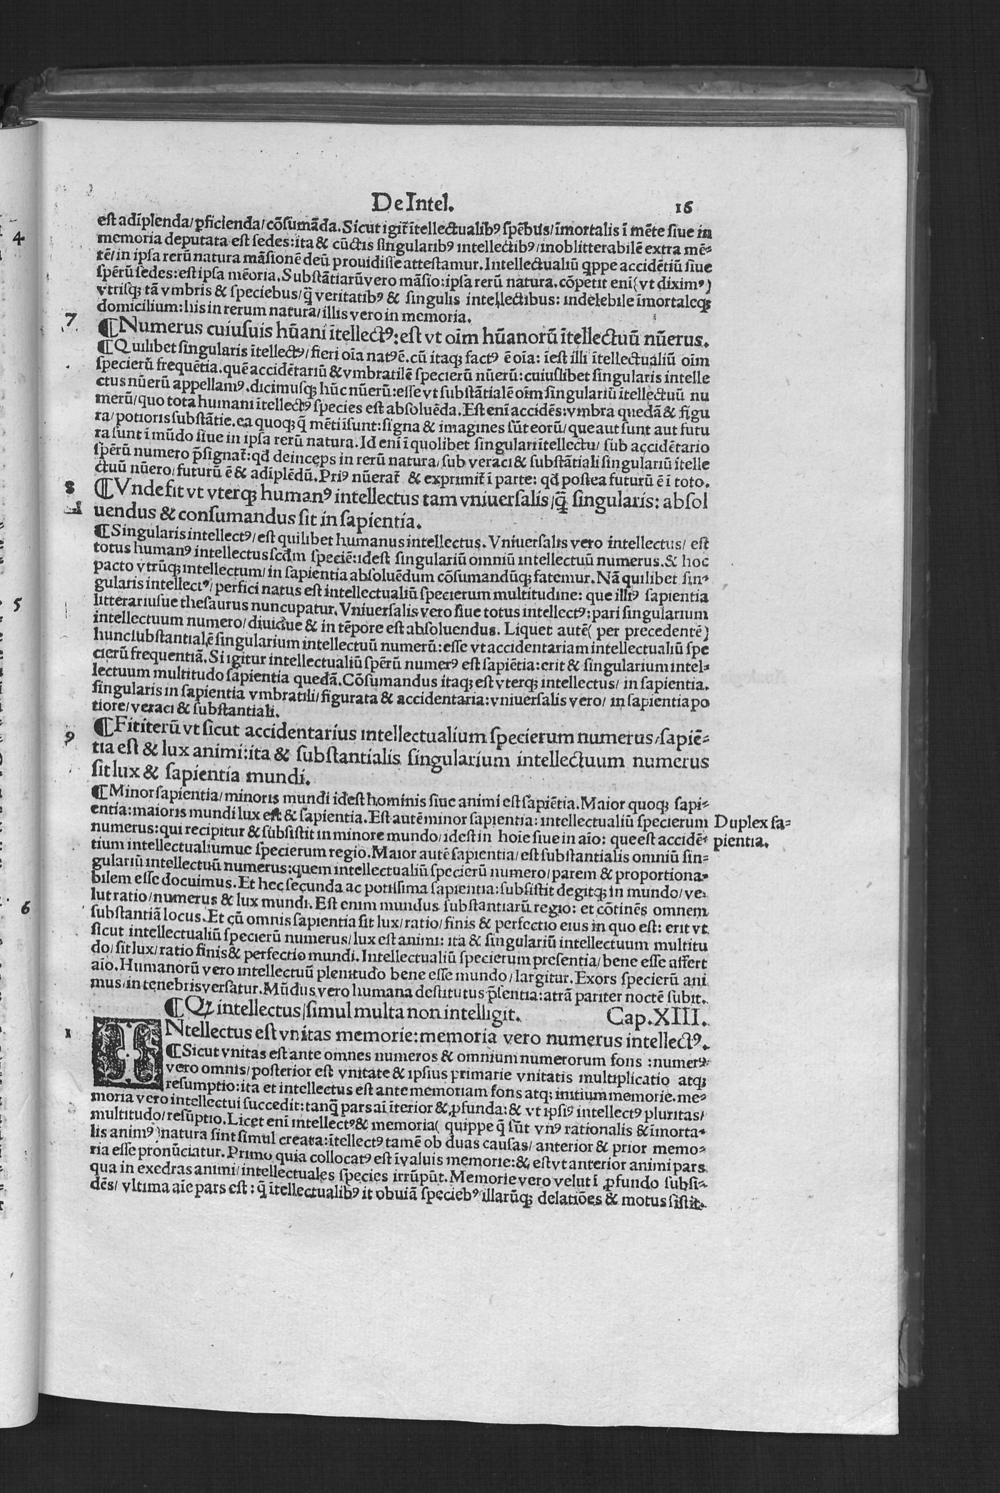 De Intel.
16
est adiplenda/ p̱ficienda/ cōsumāda. Sicut igit̃ ĩtellectualibꝰ sp̄ebus/ ĩmortalis ĩ mēte siue in
memoria deputata est sedes: ita & cūctis singularibꝰ intellectibꝰ/ inoblitterabilē extra mē⸗
tē/ in ipsa rerū natura māsionē deū prouidisse attestamur. Intellectualiū qppe accidētiū siue
sperū sedes: est ipsa mēoria. Substātiarū vero māsio: ipsa rerū natura. cōpetit eni( vt diximꝰ)
vtrisqꝫ tā vmbris & speciebus/ q̄ veritatibꝰ & singulis intellectibus: indelebile ĩmortaleqꝫ
domicilium: his in rerum natura/ illis vero in memoria.
7 ¶Numerus cuiusuis hūani ĩtellectꝰ: est vt oīm hūanorū ĩtellectuū nūerus.
¶Quilibet singularis ĩtellectꝰ/ fieri oīa natꝰ ē. cū itaqꝫ factꝰ ē oīa: ĩest illi ĩtellectualiū oīm
specierū frequētia. quē accidētariū & vmbratilē specierū nūerū: cuiuslibet singularis intelle
ctus nūerū appellamꝰ. dicimusqꝫ hūc nūerū: esse vt substātialē oīm singulariū ĩtellectuū nu
merū/ quo tota humani ĩtellectꝰ species est absoluēda. Est eni accidēs: vmbra quedā & figu
ra/ potioris substātie. ea quoqꝫ q̄ mēti isunt: signa & imagines sūt eorū/ que aut sunt aut futu
ra sunt ĩ mūdo siue in ipsa rerū natura. Id eni ĩ quolibet singulari ĩtellectu/ sub accidētario
sperū numero p̄signat̃: qd deinceps in rerū natura/ sub veraci & substātiali singulariū ĩtelle
ctuū nūero/ futurū ē & adiplēdū. Priꝰ nūerat̃ & exprimit̃ ĩ parte: qd postea futurū ē ĩ toto.
8 ¶Vnde fit vt vterqꝫ humanꝰ intellectus tam vniuersalis/ q̄ singularis: absol
uendus & consumandus sit in sapientia.
¶Singularis intellectꝰ/ est quilibet humanus intellectus. Vniuersalis vero intellectus/ est
totus humanꝰ intellectus scdm speciē: idest singulariū omniū intellectuū numerus. & hoc
pacto vtrūqꝫ intellectum/ in sapientia absoluēdum cōsumandūqꝫ fatemur. Nā quilibet sin⸗
gularis intellectꝰ/ perfici natus est intellectualiū specierum multitudine: que illiꝰ sapientia
litterariusue thesaurus nuncupatur. Vniuersalis vero siue totus intellectꝰ: pari singularium
intellectuum numero/ diuidue & in tēpore est absoluendus. Liquet autē( per precedentē)
hunc substantialē singularium intellectuū numerū: esse vt accidentariam intellectualiū spe
cierū frequentiā. Si igitur intellectualiū sperū numerꝰ est sapiētia: erit & singularium intel⸗
lectuum multitudo sapientia quedā. Cōsumandus itaqꝫ est vterqꝫ intellectus/ in sapientia.
singularis in sapientia vmbratili/ figurata & accidentaria: vniuersalis vero/ in sapientia po
tiore/ veraci & substantiali.
9 ¶Fit iterū vt sicut accidentarius intellectualium specierum numerus/ sapiē⸗
tia est & lux animi: ita & substantialis singularium intellectuum numerus
sit lux & sapientia mundi.
¶Minor sapientia/ minoris mundi idest hominis siue animi est sapiētia. Maior quoqꝫ sapi⸗
entia: maioris mundi lux est & sapientia. Est autē minor sapientia: intellectualiū specierum
Duplex sa⸗
pientia.
numerus: qui recipitur & subsistit in minore mundo/ idest in hoie siue in aīo: que est accidē⸗
tium intellectualiumue specierum regio. Maior autē sapientia/ est substantialis omniū sin⸗
gulariū intellectuū numerus: quem intellectualiū specierū numero/ parem & proportiona⸗
bilem esse docuimus. Et hec secunda ac potissima sapientia: subsistit degitqꝫ in mundo/ ve
lut ratio/ numerus & lux mundi. Est enim mundus substantiarū regio: et cōtinēs omnem
substantiā locus. Et cū omnis sapientia sit lux/ ratio/ finis & perfectio eius in quo est: erit vt
sicut intellectualiū specierū numerus/ lux est animi: ita & singulariū intellectuum multitu
do/ sit lux/ ratio finis & perfectio mundi. Intellectualiū specierum presentia/ bene esse affert
aīo. Humanorū vero intellectuū plenitudo bene esse mundo/ largitur. Exors specierū ani
mus/ in tenebris versatur. Mūdus vero humana destitutus p̄sentia: atrā pariter noctē subit.
¶Qꝫ intellectus/ simul multa non intelligit. Cap. XIII.
1 INtellectus est vnitas memorie: memoria vero numerus intellectꝰ.
¶Sicut vnitas est ante omnes numeros & omnium numerorum fons: numerꝰ
vero omnis/ posterior est vnitate & ipsius primarie vnitatis multiplicatio atqꝫ
resumptio: ita et intellectus est ante memoriam fons atqꝫ initium memorie. me⸗
moria vero intellectui succedit: tanq̄ pars aī iterior & p̱funda: & vt ipsiꝰ intellectꝰ pluritas/
multitudo/ resūptio. Licet eni intellectꝰ & memoria( quippe q̄ sūt vnꝰ rationalis & ĩmorta⸗
lis animꝰ) natura sint simul creata: ĩtellectꝰ tamē ob duas causas/ anterior & prior memo⸗
ria esse pronūciatur. Primo quia collocatꝰ est ĩ valuis memorie: & est vt anterior animi pars
qua in exedras animi/ intellectuales species irrūpūt. Memorie vero velut ĩ p̱fundo subsi⸗
dēs/ vltima aīe pars est: q̄ ĩtellectualibꝰ it obuiā speciebꝰ illarūqꝫ delatiōes & motus sistit.
4
5
6